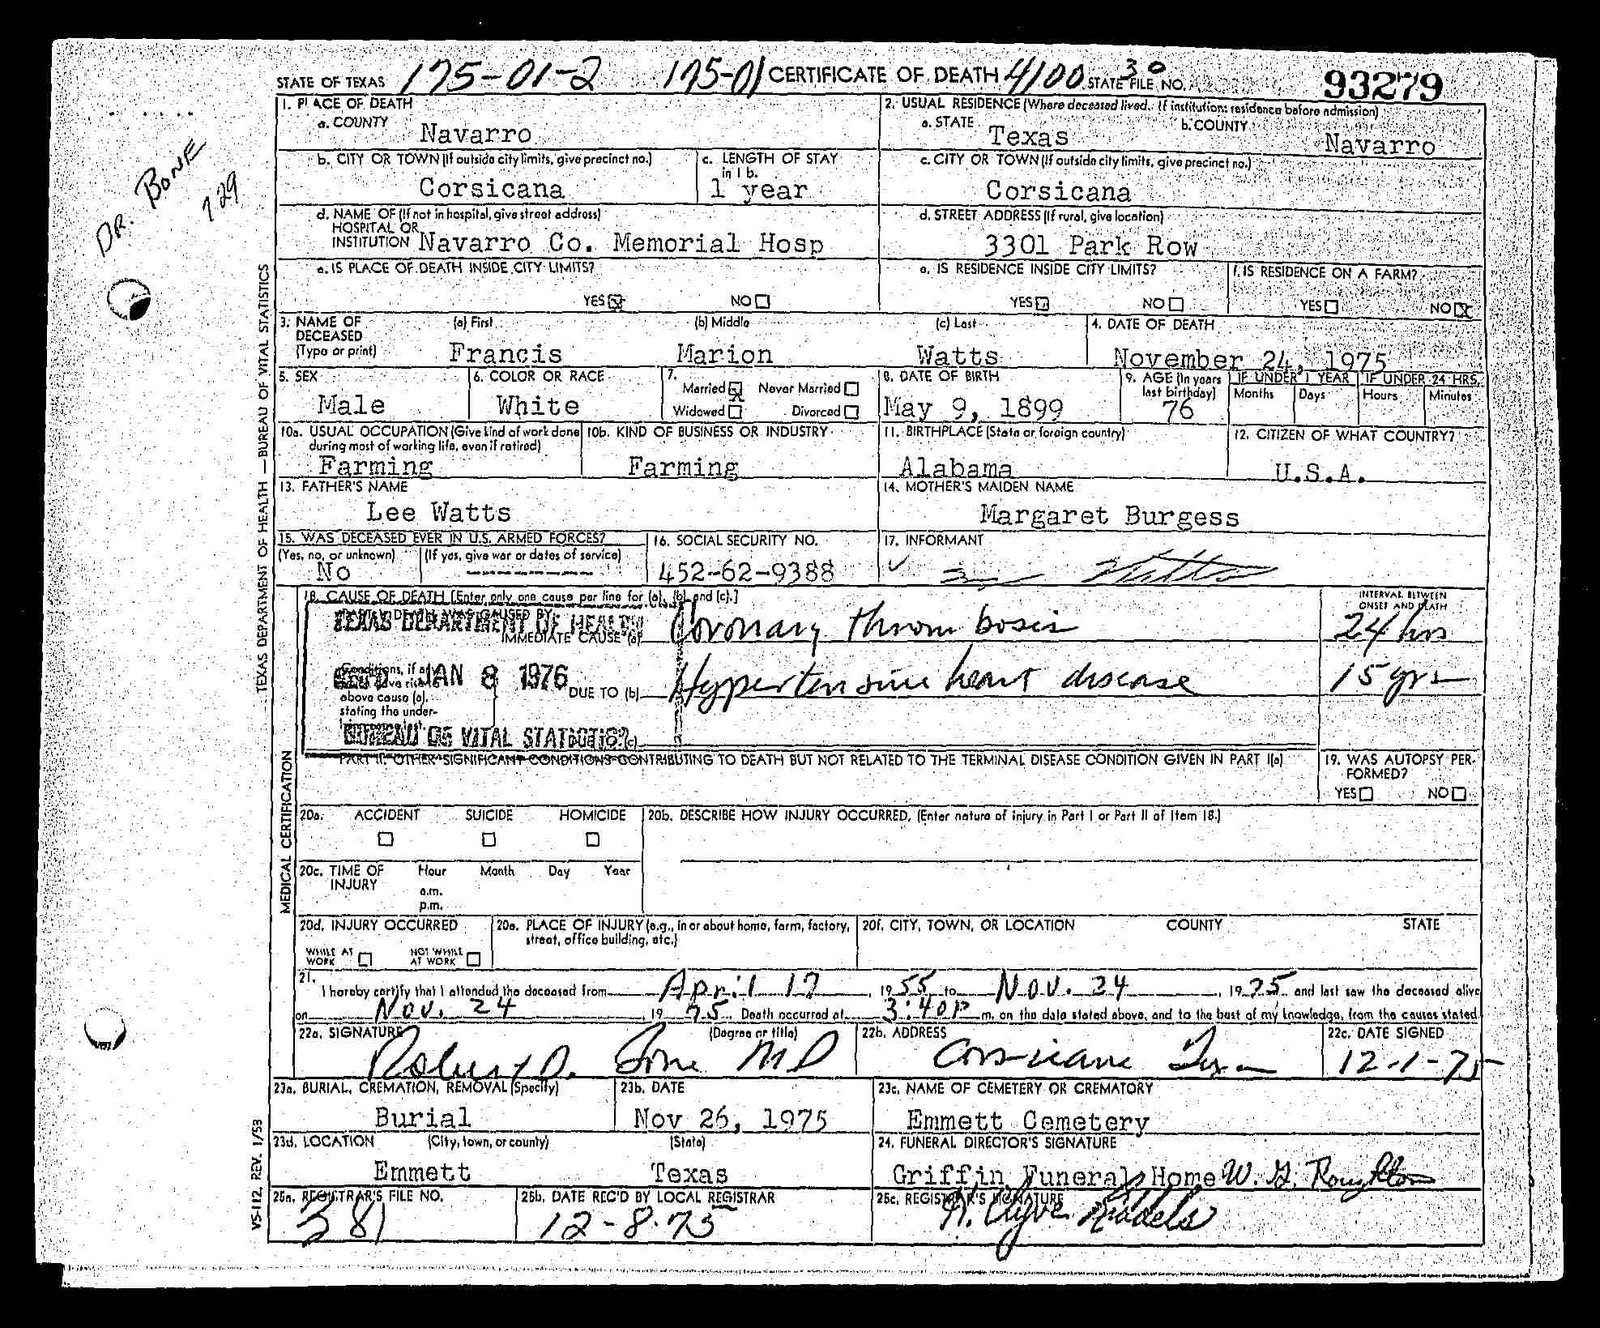 STATE OF TEXAS 175-01-2 175-01 CERTIFICATE OF DEATH 4100 30 STATE FILE NO. 93279
DR. BONE
729
TEXAS DEPARTMENT OF HEALTH — BUREAU OF VITAL STATISTICS
1. PLACE OF DEATH
a. COUNTY Navarro
2. USUAL RESIDENCE (Where deceased lived. If institution: residence before admission)
a. STATE Texas b. COUNTY Navarro
b. CITY OR TOWN (If outside city limits, give precinct no.) Corsicana
c. LENGTH OF STAY in 1 b. 1 year
c. CITY OR TOWN (If outside city limits, give precinct no.) Corsicana
d. NAME OF (If not in hospital, give street address) HOSPITAL OR INSTITUTION Navarro Co. Memorial Hosp
d. STREET ADDRESS (If rural, give location) 3301 Park Row
e. IS PLACE OF DEATH INSIDE CITY LIMITS? YES NO
e. IS RESIDENCE INSIDE CITY LIMITS? YES NO
f. IS RESIDENCE ON A FARM? YES NO
3. NAME OF DECEASED (Type or print) (a) First Francis (b) Middle Marion (c) Last Watts
4. DATE OF DEATH November 24, 1975
5. SEX Male
6. COLOR OR RACE White
7. Married Never Married Widowed Divorced
8. DATE OF BIRTH May 9, 1899
9. AGE (In years last birthday) 76
IF UNDER 1 YEAR Months Days
IF UNDER 24 HRS. Hours Minutes
10a. USUAL OCCUPATION (Give kind of work done during most of working life, even if retired) Farming
10b. KIND OF BUSINESS OR INDUSTRY Farming
11. BIRTHPLACE (State or foreign country) Alabama
12. CITIZEN OF WHAT COUNTRY? U.S.A.
13. FATHER'S NAME Lee Watts
14. MOTHER'S MAIDEN NAME Margaret Burgess
15. WAS DECEASED EVER IN U.S. ARMED FORCES? (Yes, no, or unknown) No (If yes, give war or dates of service)
16. SOCIAL SECURITY NO. 452-62-9388
17. INFORMANT
MEDICAL CERTIFICATION
18. CAUSE OF DEATH [Enter only one cause per line for (a), (b) and (c).]
INTERVAL BETWEEN ONSET AND DEATH
PART I. DEATH WAS CAUSED BY:
TEXAS DEPARTMENT OF HEALTH
IMMEDIATE CAUSE (a) Coronary thrombosis 24 hrs
JAN 8 1976
above cause (a), stating the under-
DUE TO (b) Hypertensive heart disease 15 yrs
BUREAU OF VITAL STATISTICS
PART II. OTHER SIGNIFICANT CONDITIONS CONTRIBUTING TO DEATH BUT NOT RELATED TO THE TERMINAL DISEASE CONDITION GIVEN IN PART I(a)
19. WAS AUTOPSY PERFORMED? YES NO
20a. ACCIDENT SUICIDE HOMICIDE
20b. DESCRIBE HOW INJURY OCCURRED. (Enter nature of injury in Part I or Part II of Item 18.)
20c. TIME OF INJURY Hour Month Day Year
a.m.
p.m.
20d. INJURY OCCURRED
WHILE AT WORK NOT WHILE AT WORK
20e. PLACE OF INJURY (e.g., in or about home, farm, factory, street, office building, etc.)
20f. CITY, TOWN, OR LOCATION COUNTY STATE
21. I hereby certify that I attended the deceased from April 17, 1955 to Nov. 24, 1975 and last saw the deceased alive
on Nov. 24, 1975. Death occurred at 3:40P m. on the date stated above, and to the best of my knowledge, from the causes stated
22a. SIGNATURE (Degree or title) Robert D. Bone MD
22b. ADDRESS Corsicana Texas
22c. DATE SIGNED 12-1-75
23a. BURIAL, CREMATION, REMOVAL (Specify) Burial
23b. DATE Nov 26, 1975
23c. NAME OF CEMETERY OR CREMATORY Emmett Cemetery
23d. LOCATION (City, town, or county) Emmett (State) Texas
24. FUNERAL DIRECTOR'S SIGNATURE Griffin Funeral Home
25a. REGISTRAR'S FILE NO. 381
25b. DATE REC'D BY LOCAL REGISTRAR 12-8-75
25c. REGISTRAR'S SIGNATURE
VS-112, REV. 1/59